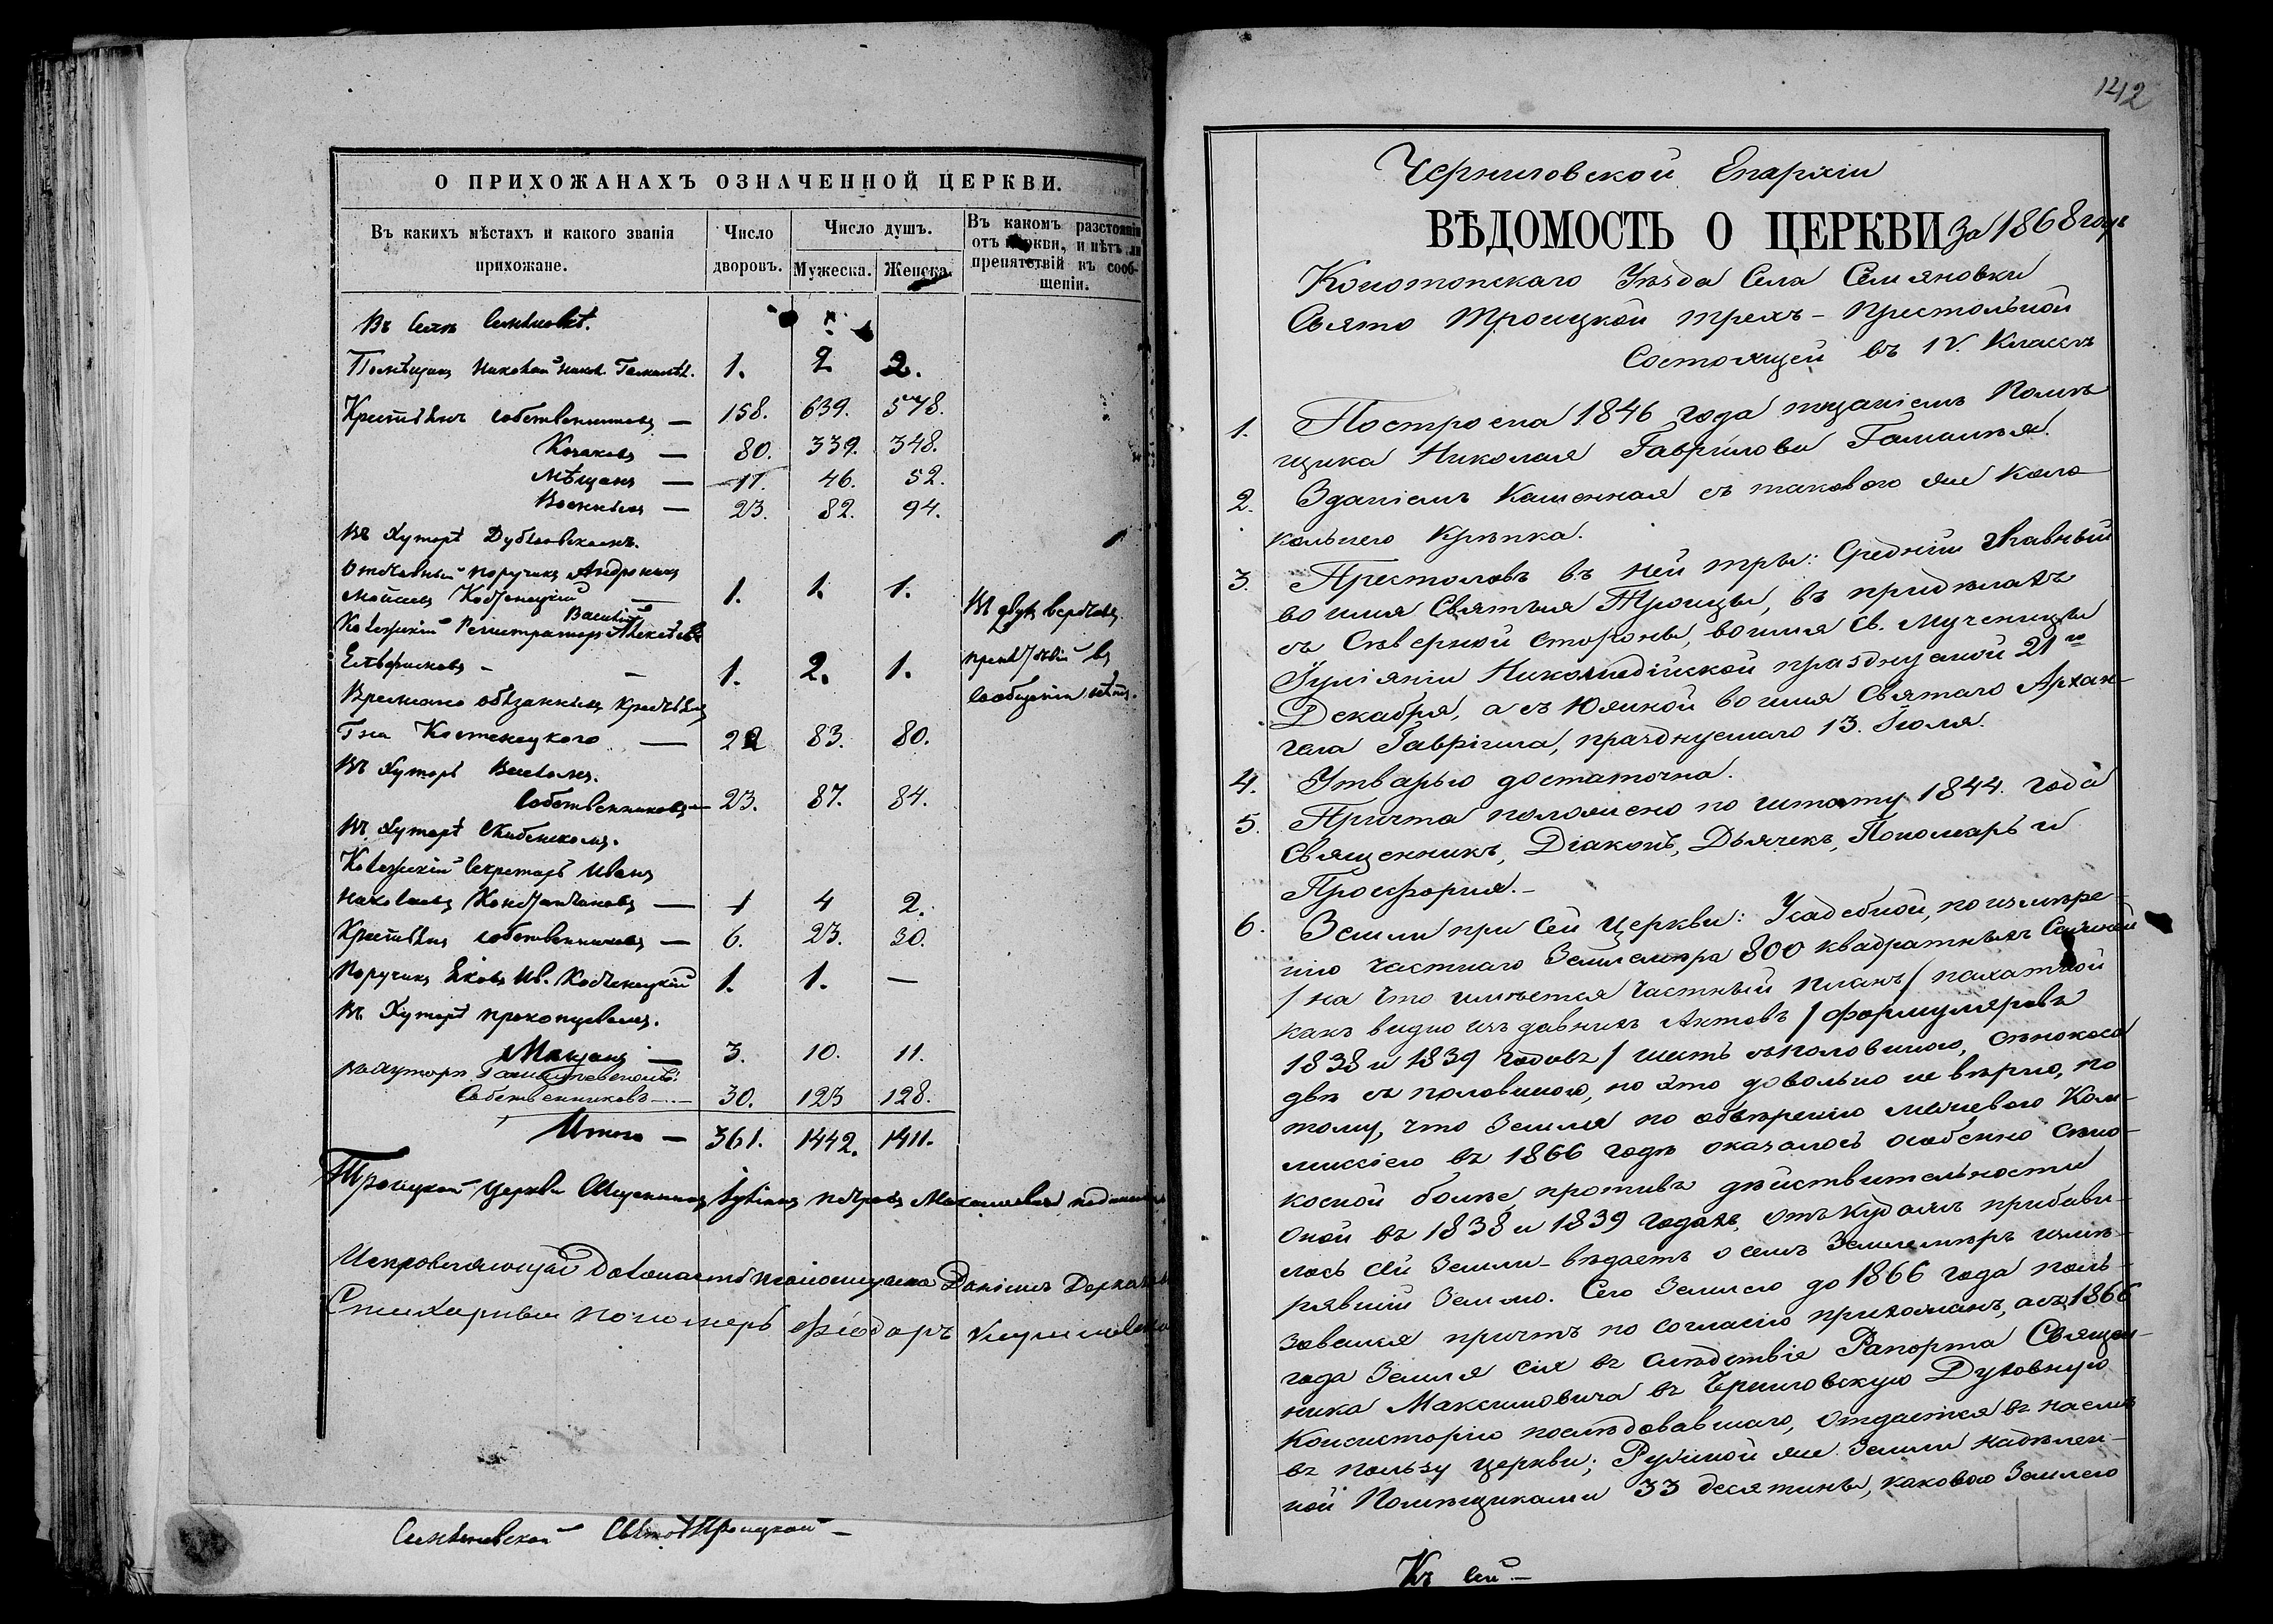 О ПРИХОЖАНАХЪ ОЗНАЧЕННОЙ ЦЕРКВИ.
Въ какихъ мѣстахъ и какого званія прихожане.
Число дворовъ.
Число душъ.
Мужеска. Женска.
Въ какомъ разстояніи
отъ церкви, и нѣтъ ли
препятствій къ сооб-
щеніи.
Въ селѣ
Помѣщикъ Николай Никол. 1. 2 2.
Крестьянъ собственниковъ — 158. 639. 578.
Козаковъ — 80. 339. 348.
Мѣщанъ — 17. 46. 52.
Военныхъ — 23. 82. 94.
Въ Хуторѣ
Отставный поручикъ
Костенецкій — 1. 1. 1.
Василій
Колежскій Регистраторъ Алексѣевъ
— 1. 2. 1.
Въ двухъ верстахъ
препятствій въ
сообщеніи нѣтъ.
Временно обязанныхъ крестьянъ
Г-на Костенецкого — 22 83. 80.
Въ Хуторѣ
Собственниковъ — 23. 87. 84.
Въ Хуторѣ
Колежскій Секретарь Иванъ
Николаевъ — 1 4 2.
Крестьянъ собственниковъ — 6. 23. 30.
Поручикъ Яковъ Ив. Костенецкій 1. 1. —
Въ Хуторѣ
Мѣщанъ — 3. 10. 11.
Въ хуторѣ
Собственниковъ — 30. 123 128.
Итого — 361. 1442. 1411.
Троицкой церкви Священникъ Петровъ Максимовичъ
Исправляющій должность псаломщика Даніилъ
Стихарный пономарь Ѳеодоръ
Свято Троицкой —
142
Черниговской Епархіи
ВѢДОМОСТЬ О ЦЕРКВИ за 1868 годъ
Конотопскаго Уѣзда Села Семяновки
Свято Троицкой трехъ-Престольной
Состоящей въ IV. Классѣ
1. Построена 1846 года тщаніемъ Помѣ
щика Николая Гаврилова Гамалѣя.
2. Зданіемъ Каменная съ таковою же коло
кольнею крѣпка.
3. Престоловъ въ ней три: Средній главный
во имя Святыя Троицы, въ придѣлахъ
съ Сѣверной стороны, во имя Св. Мученицы
Іуліяніи Никомидійской празднуемой 21го
Декабря, а съ Южной во имя Святаго Архан-
гела Гавріила, празднуемаго 13. Іюля.
4. Утварью достаточна.
5. Причта положено по штату 1844. года
Священникъ, Діаконъ, Дьячекъ, Пономарь и
Просфорня. —
6. Земли при сей церкви: Усадебной, по измѣре-
нію частнаго Землемѣра 800 квадратныхъ Саженей
/ на что имѣется частный планъ / пахатной
какъ видно изъ давнихъ Актовъ / формуляровъ
1838 и 1839 годовъ / шесть съ половиною, сѣнокоса
двѣ съ половиною, но это довольно не вѣрно, по
тому, что земля по обмѣренію межевою Ком-
миссіею въ 1866 годѣ оказалось особенно сѣно-
косной болѣе, противъ дѣйствительности
оной въ 1838 и 1839 годахъ, откудажъ прибави-
лось сей Земли — вѣдаетъ о семъ Землемѣръ измѣ-
рявшій Землю. Сею Землею до 1866 года поль-
зовался причтъ по согласію прихожанъ, а съ 1866
года Земля сія въ слѣдствіе Рапорта Священ-
ника Максимовича въ Черниговскую Духовную
Консисторію послѣдовавшаго, отдается въ наемъ
въ пользу церкви; Ружной же Земли надѣлен-
ной Помѣщиками 33 десятины, каковою Землею
Къ сей —